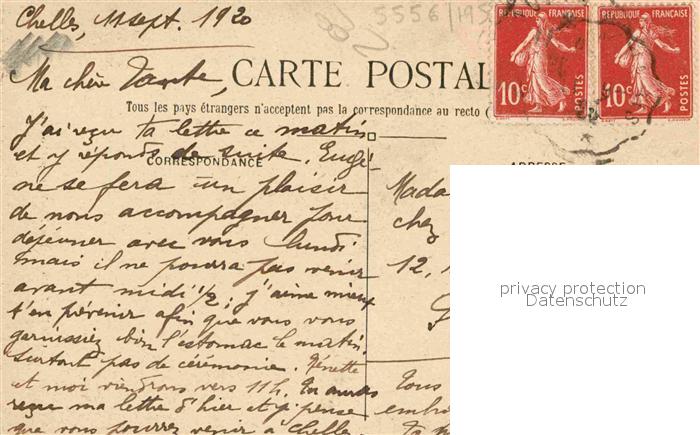 Chelles, 11 sept. 1920
5556/195
RÉPUBLIQUE FRANÇAISE
10c
POSTES
RÉPUBLIQUE FRANÇAISE
10c
POSTES
Ma chère Tante,
CARTE POSTAL
Tous les pays étrangers n'acceptent pas la correspondance au recto (
CORRESPONDANCE
ADRESSE
J'ai reçu ta lettre ce matin
et y réponds de suite. Eugè-
ne se fera un plaisir
de nous accompagner pour
déjeuner avec vous lundi
mais il ne pourra pas venir
avant midi 1/2; j'aime mieux
t'en prévenir afin que vous vous
garnissiez bien l'estomac le matin.
Surtout pas de cérémonie. Nénette
et moi viendrons vers 11h. Tu auras
reçu ma lettre d'hier et j'y pense
que vous pourrez venir à Chelles.
Mada
chez
12, 
Tous
embr
privacy protection
Datenschutz